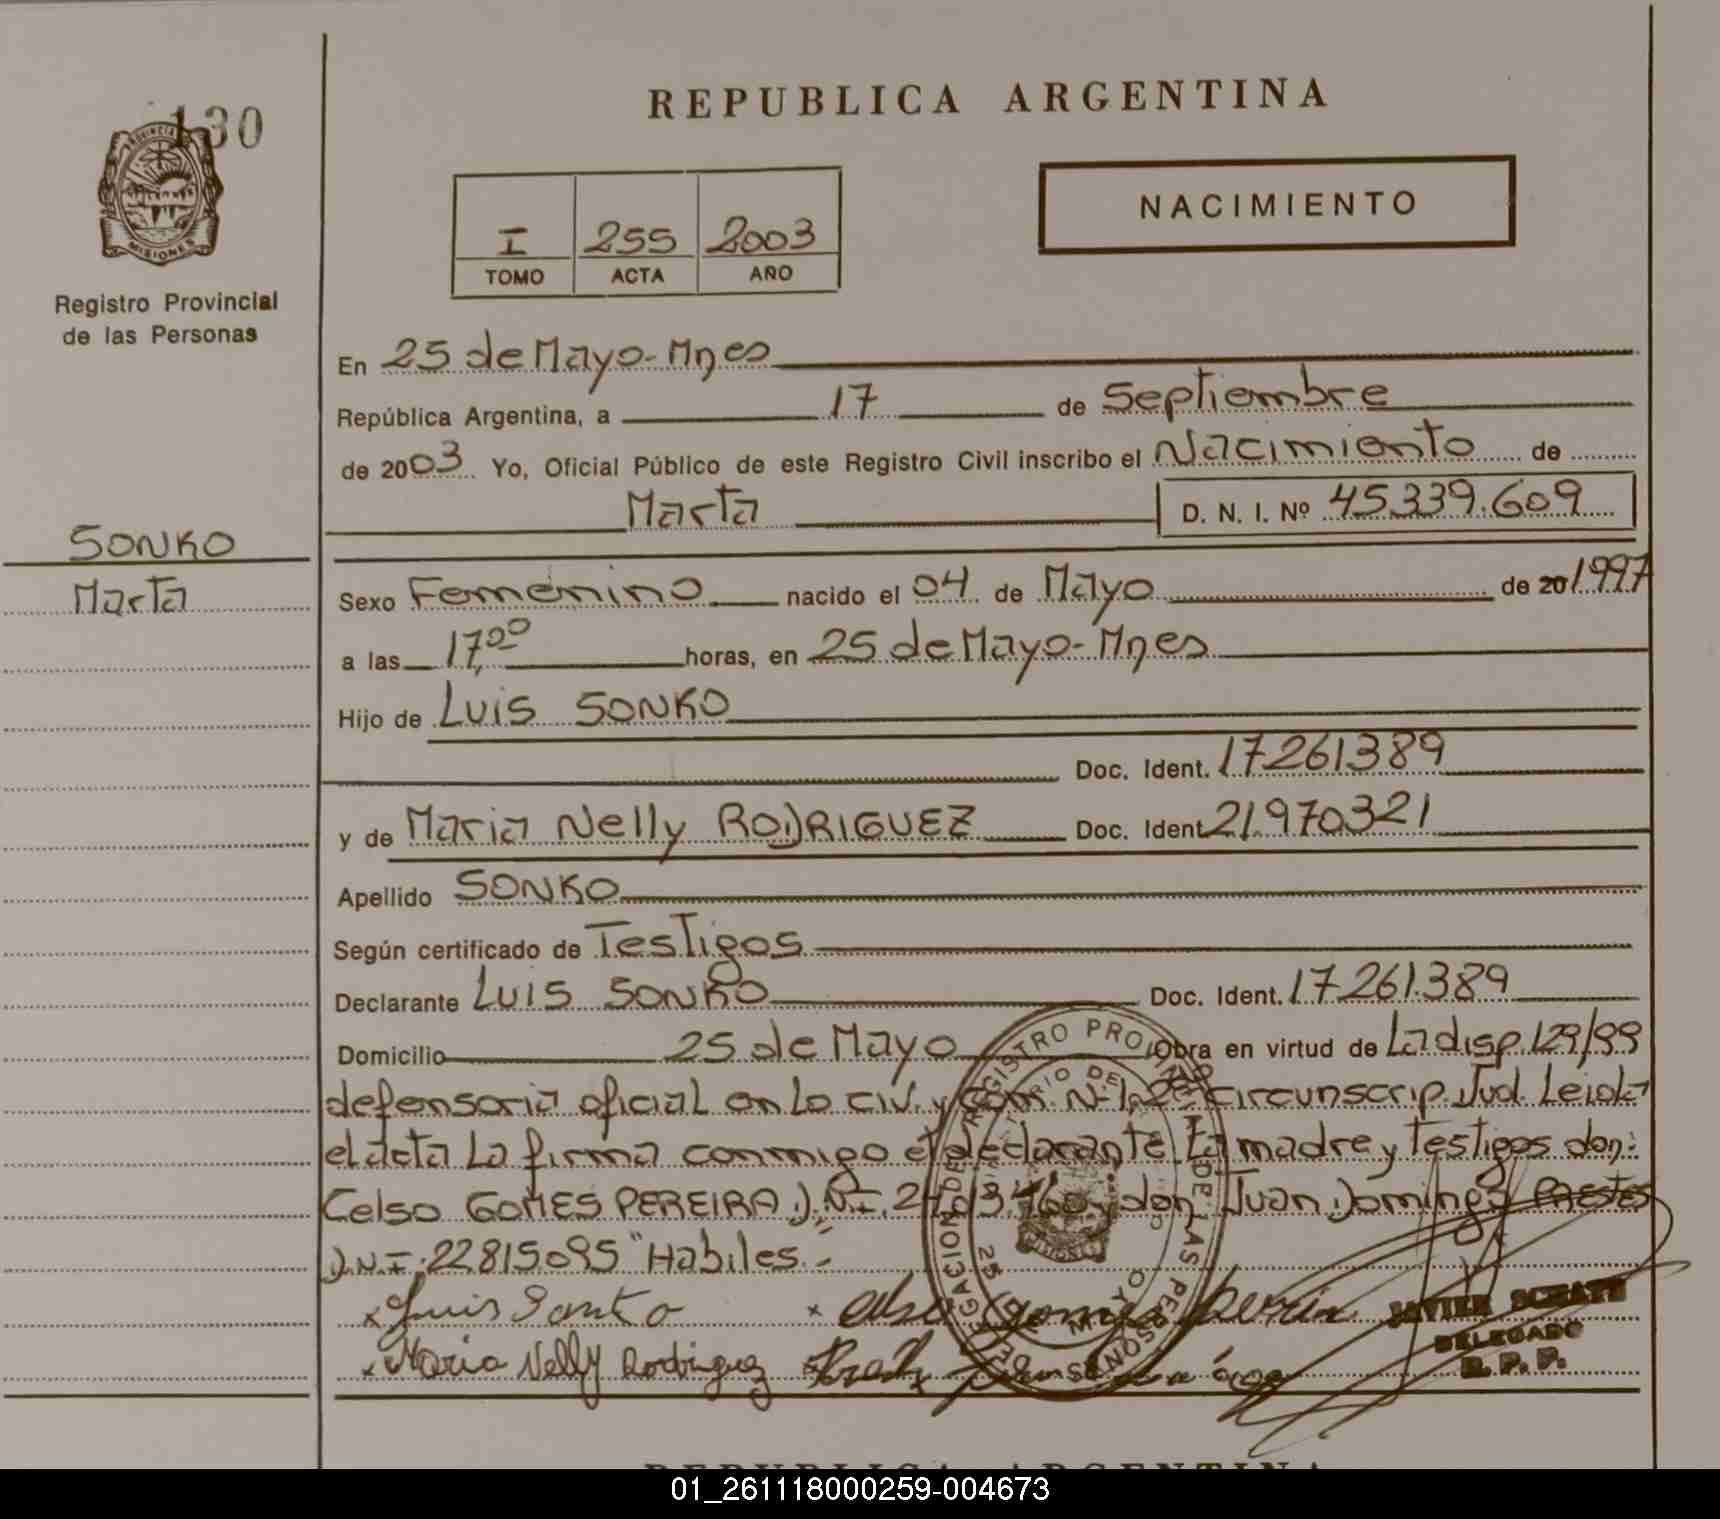 130
PROVINCIA
MISIONES
Registro Provincial
de las Personas
REPUBLICA ARGENTINA
I 255 2003
TOMO ACTA AÑO
NACIMIENTO
En 25 de Mayo-Mnes
República Argentina, a 17 de Septiembre
de 2003 Yo, Oficial Público de este Registro Civil inscribo el Nacimiento de
Marta D. N. I. Nº 45.339.609
SONKO
Marta
Sexo Femenino nacido el 04 de Mayo de 20 1997
a las 17,00 horas, en 25 de Mayo-Mnes
Hijo de Luis SONKO
Doc. Ident. 17261389
y de Maria Nelly RODRIGUEZ Doc. Ident 21970321
Apellido SONKO
Según certificado de Testigos
Declarante Luis SONKO Doc. Ident. 17261389
Domicilio 25 de Mayo Obra en virtud de La disp. 129/99
defensoria oficial en Lo civ. y Com. N-1, 2da circunscrip. Jud. Leida
el acta La firma conmigo el declarante La madre y Testigos don:
Celso GOMES PEREIRA D.N.I. don Juan Domingo PRESTES
D.N.I. 22815095 "Habiles.-
x Luis Sonko x Gomes
x Maria Nelly Rodriguez
JAVIER
DELEGADO
R. P. P.
REPUBLICA ARGENTINA
01_261118000259-004673